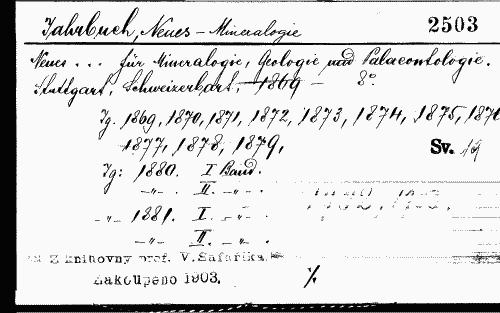 Jahrbuch, Neues – Mineralogie 2503
Neues ... für Mineralogie, Geologie und Palaeontologie.
Stuttgart, Schweizerbart, 1869 – 8°
Jg. 1869, 1870, 1871, 1872, 1873, 1874, 1875, 1876
1877, 1878, 1879, Sv. 19
Jg: 1880. I Band.
–„– II. –„– .
–„– 1881. I. –„– .
–„– II. –„– .
Z knihovny prof. V. Šafaříka.
Zakoupeno 1903. ./.